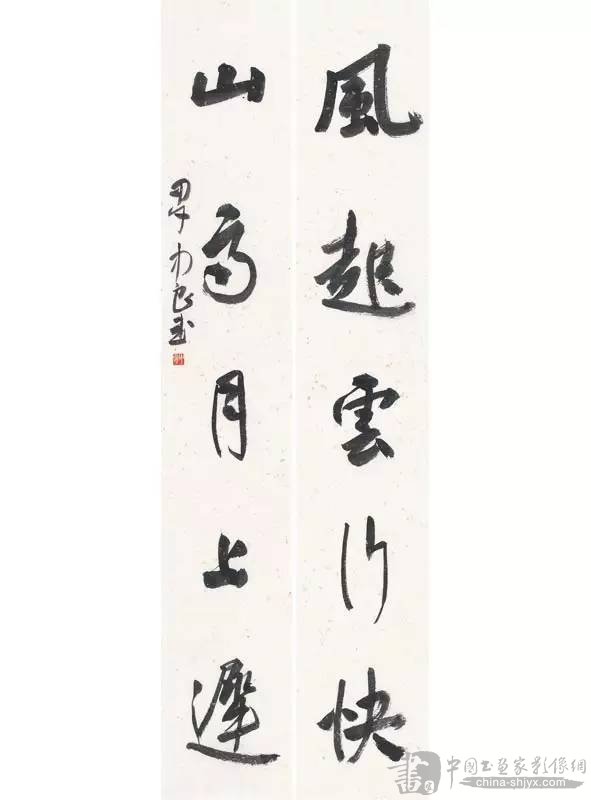 風起雲行快
山高月上遲
中国书画家影像網
www.china-shjyx.com